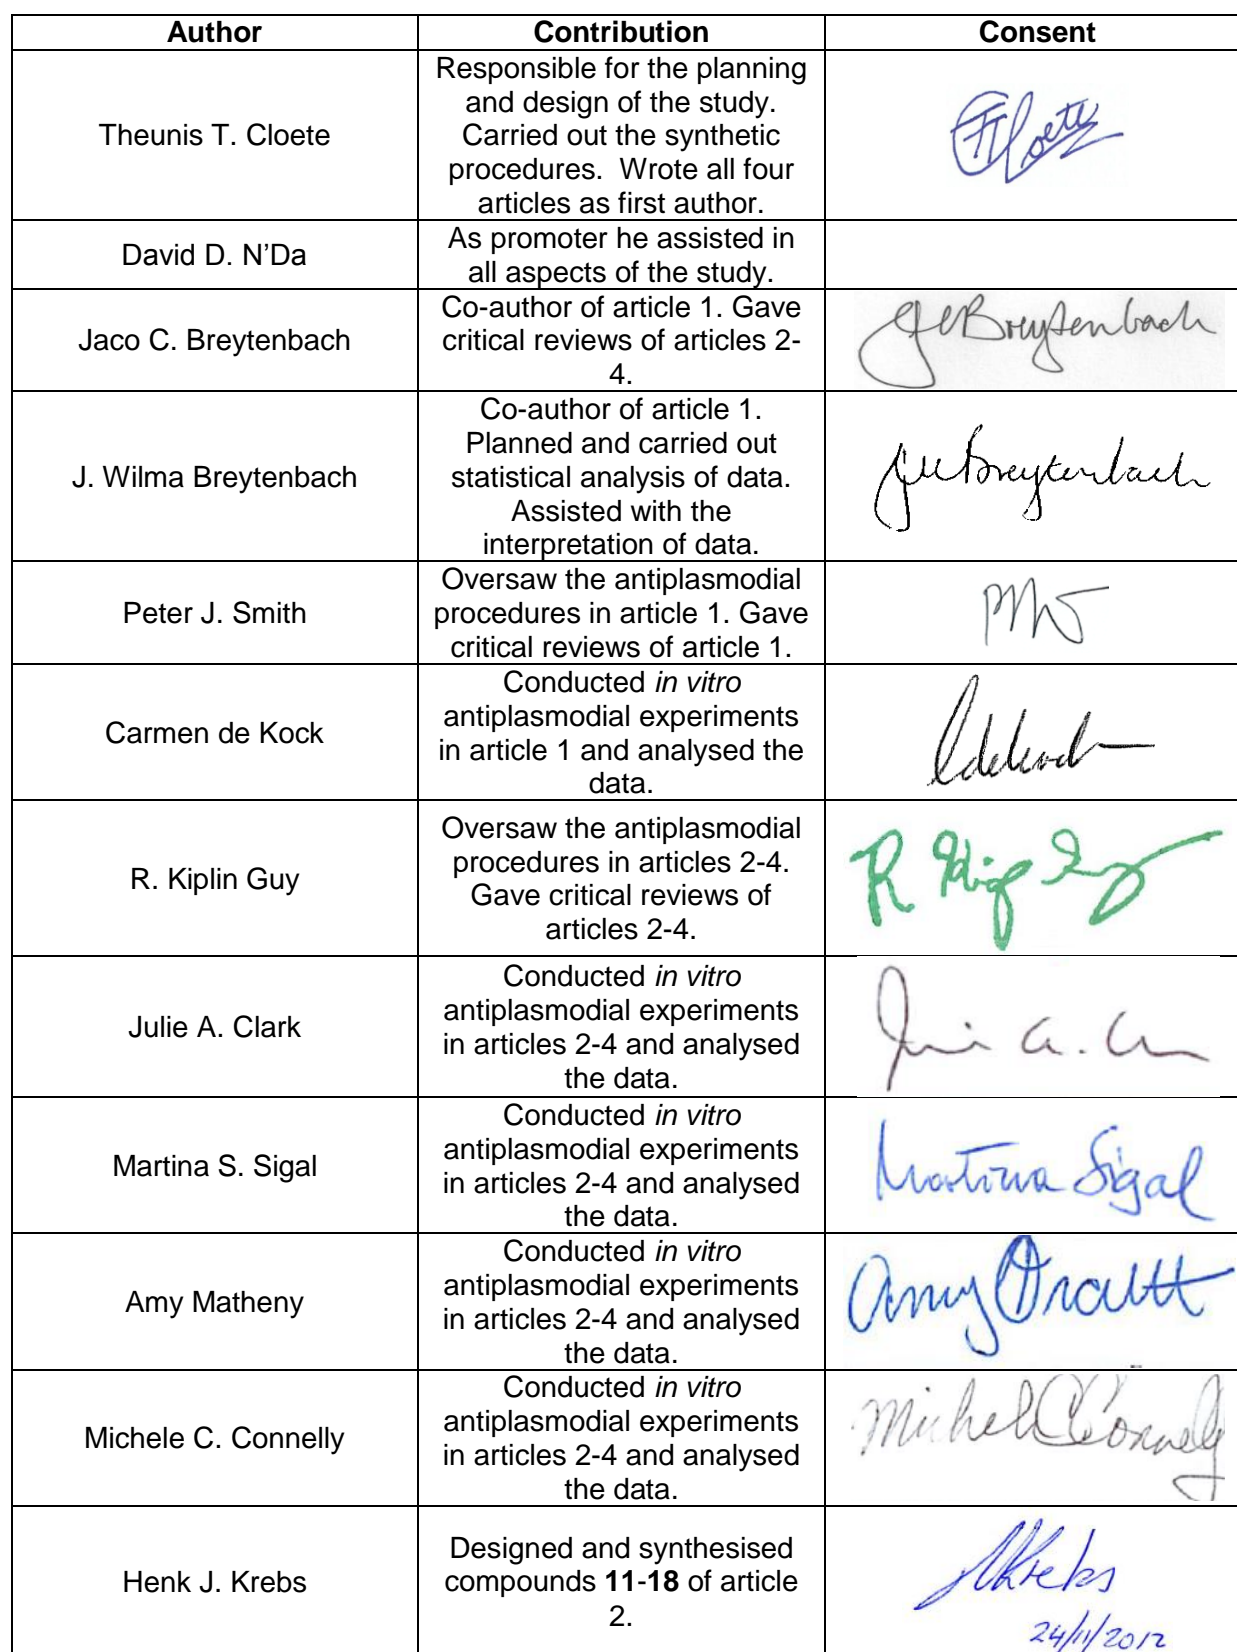 Author Contribution Consent
Theunis T. Cloete
Responsible for the planning
and design of the study.
Carried out the synthetic
procedures.  Wrote all four
articles as first author.
TTCloete
David D. N’Da
As promoter he assisted in
all aspects of the study.
Jaco C. Breytenbach
Co-author of article 1. Gave
critical reviews of articles 2-
4.
Breytenbach
J. Wilma Breytenbach
Co-author of article 1.
Planned and carried out
statistical analysis of data.
Assisted with the
interpretation of data.
JWBreytenbach
Peter J. Smith
Oversaw the antiplasmodial
procedures in article 1. Gave
critical reviews of article 1.
Carmen de Kock
Conducted in vitro
antiplasmodial experiments
in article 1 and analysed the
data.
CdeKock
R. Kiplin Guy
Oversaw the antiplasmodial
procedures in articles 2-4.
Gave critical reviews of
articles 2-4.
R Kip Guy
Julie A. Clark
Conducted in vitro
antiplasmodial experiments
in articles 2-4 and analysed
the data.
Martina S. Sigal
Conducted in vitro
antiplasmodial experiments
in articles 2-4 and analysed
the data.
Martina Sigal
Amy Matheny
Conducted in vitro
antiplasmodial experiments
in articles 2-4 and analysed
the data.
Amy
Michele C. Connelly
Conducted in vitro
antiplasmodial experiments
in articles 2-4 and analysed
the data.
Michele Connelly
Henk J. Krebs
Designed and synthesised
compounds 11-18 of article
2.
HKrebs
24/11/2012